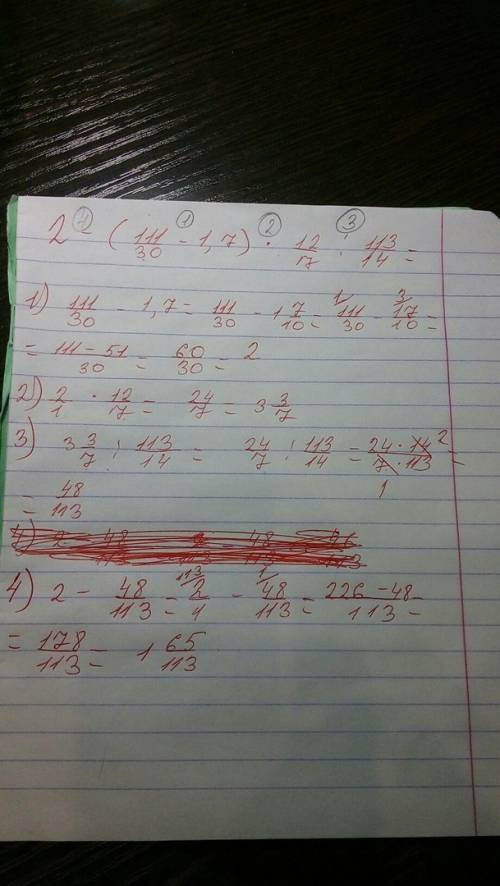 ④ ① ② ③
2 - (111/30 - 1,7) · 12/7 : 113/14 =
1) 111/30 - 1,7 = 111/30 - 1 7/10 = 111/30 - 17/10 =
= 111-51/30 = 60/30 = 2
2) 2/1 · 12/7 = 24/7 = 3 3/7
3) 3 3/7 : 113/14 = 24/7 : 113/14 = 24·14²/7·113 =
1
= 48/113
4) 2 - 48/113 = 2/1 - 48/113 = 226-48/113 =
= 178/113 = 1 65/113